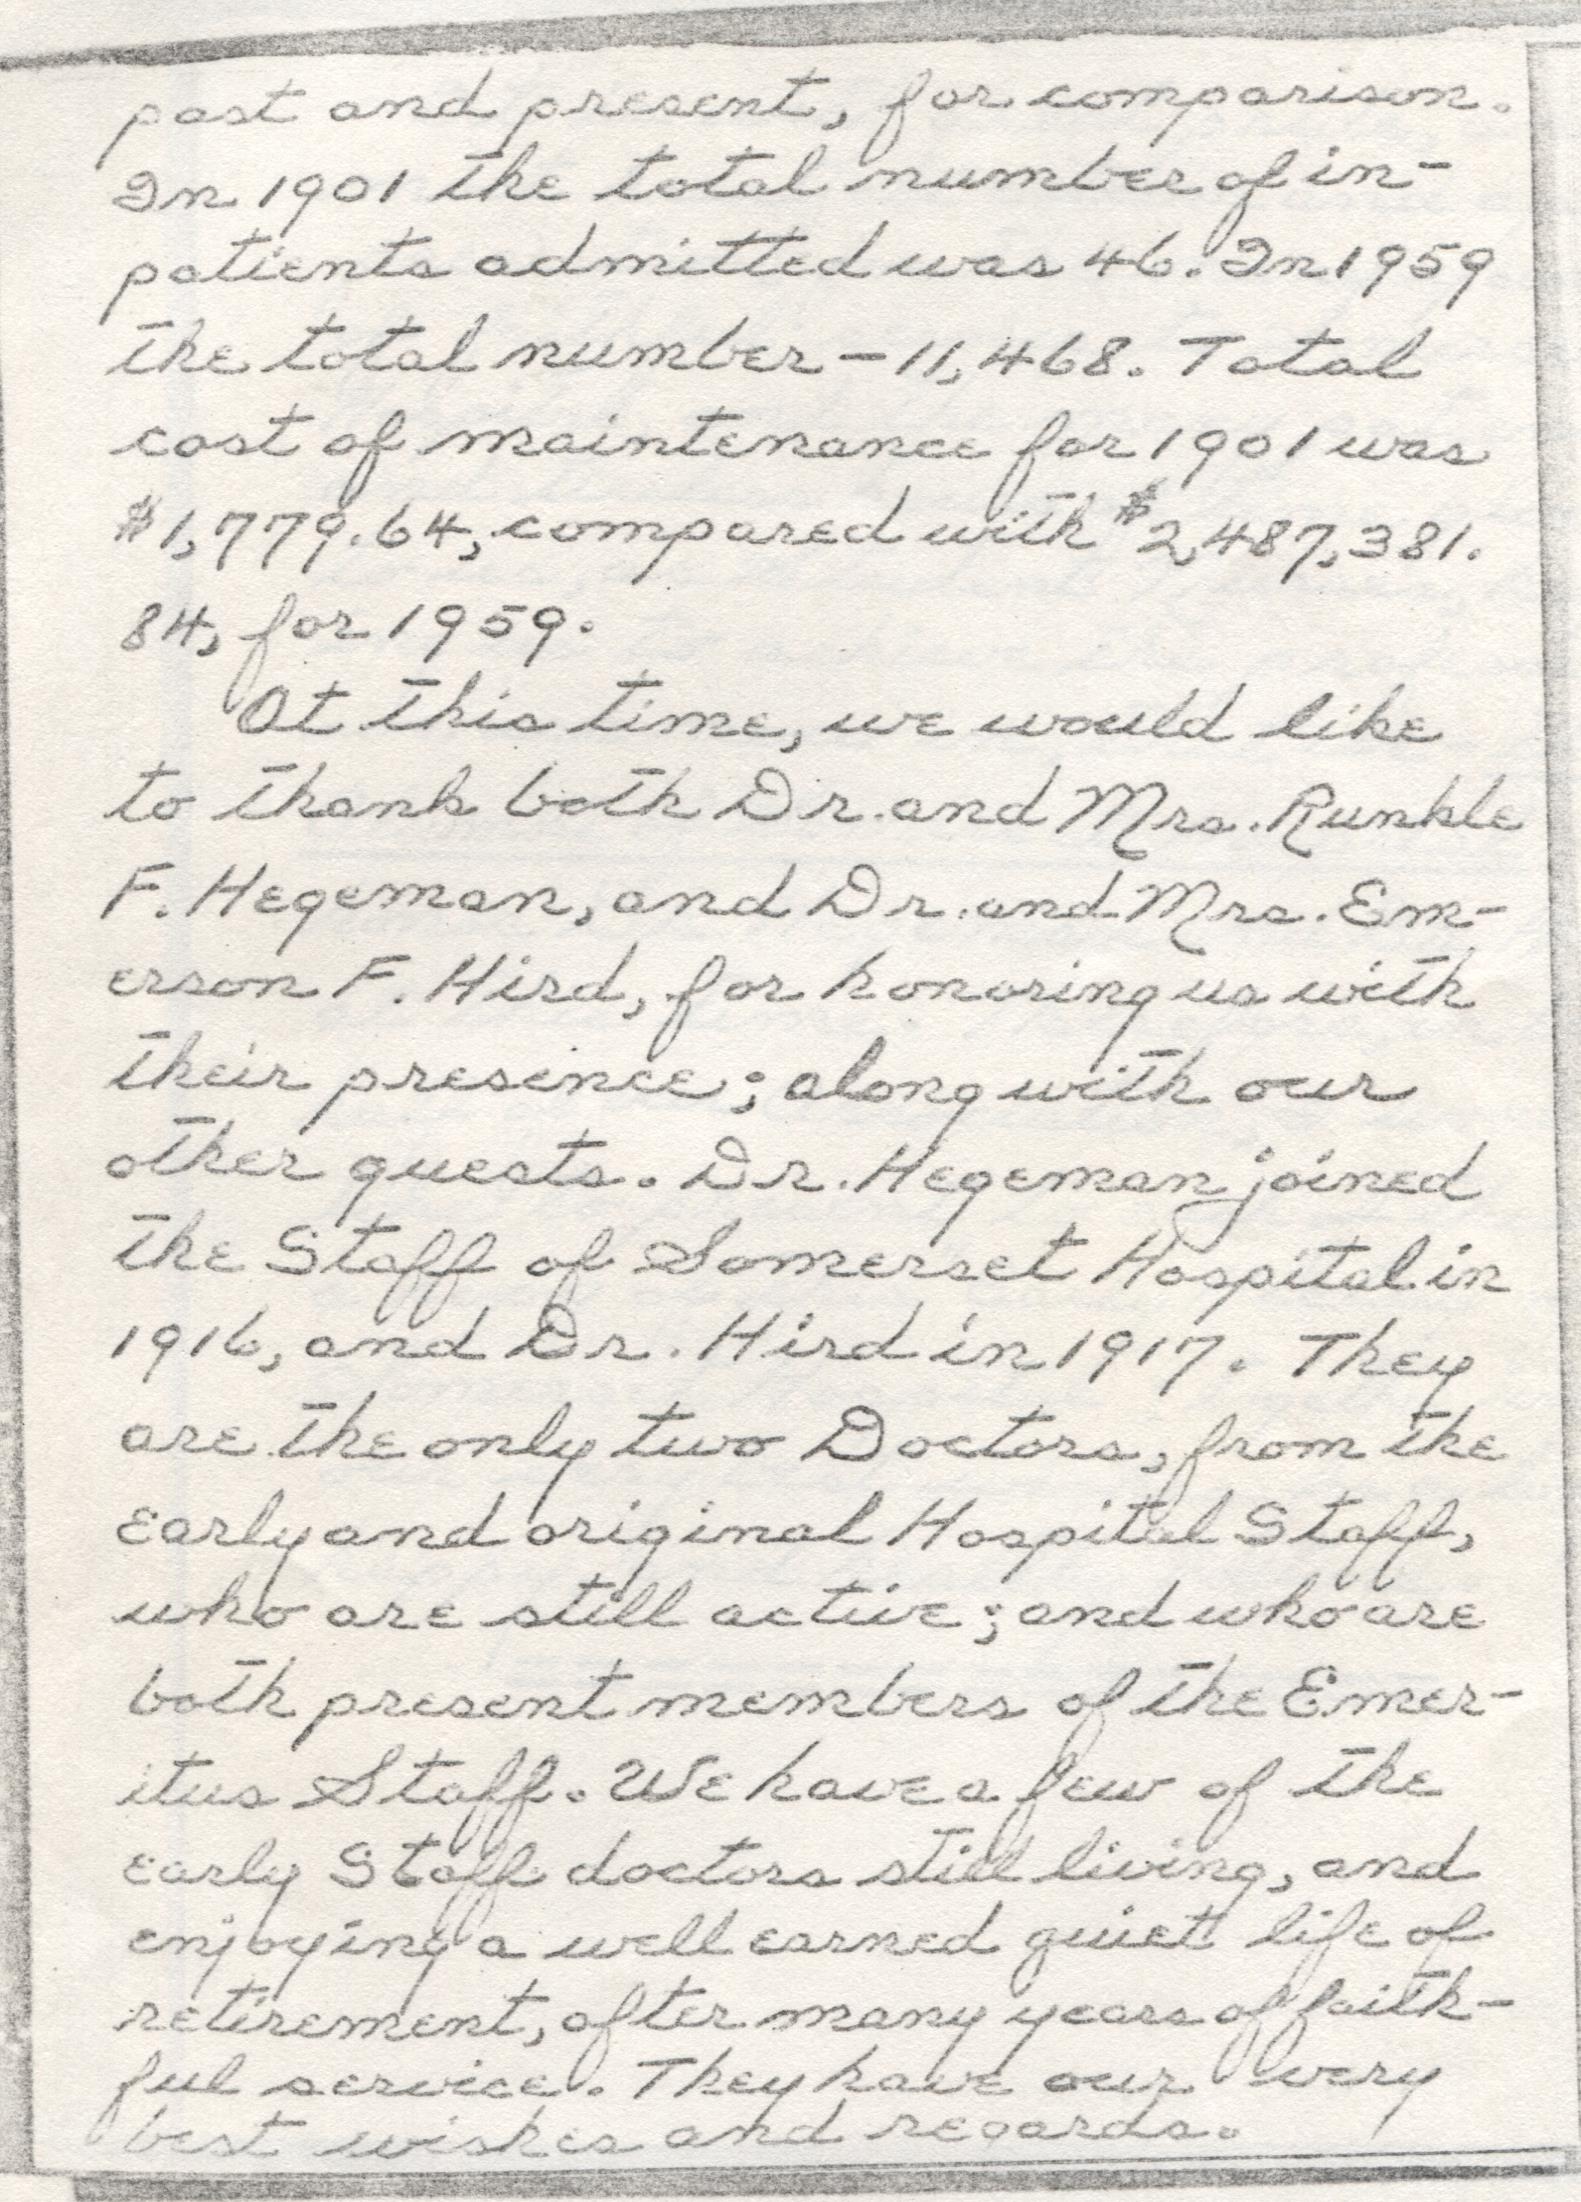 past and present, for comparison.
In 1901 the total number of in-
patients admitted was 46. In 1959
the total number - 11,468. Total
cost of maintenance for 1901 was
$1,779.64, compared with $2,487,381.
84, for 1959.
At this time, we would like
to thank both Dr. and Mrs. Runkle
F. Hegeman, and Dr. and Mrs. Em-
erson F. Hird, for honoring us with
their presence; along with our
other guests. Dr. Hegeman joined
the Staff of Somerset Hospital in
1916, and Dr. Hird in 1917. They
are the only two Doctors, from the
early and original Hospital Staff,
who are still active; and who are
both present members of the Emer-
itus Staff. We have a few of the
early Staff doctors still living, and
enjoying a well earned quiet life of
retirement, after many years of faith-
ful service. They have our very
best wishes and regards.